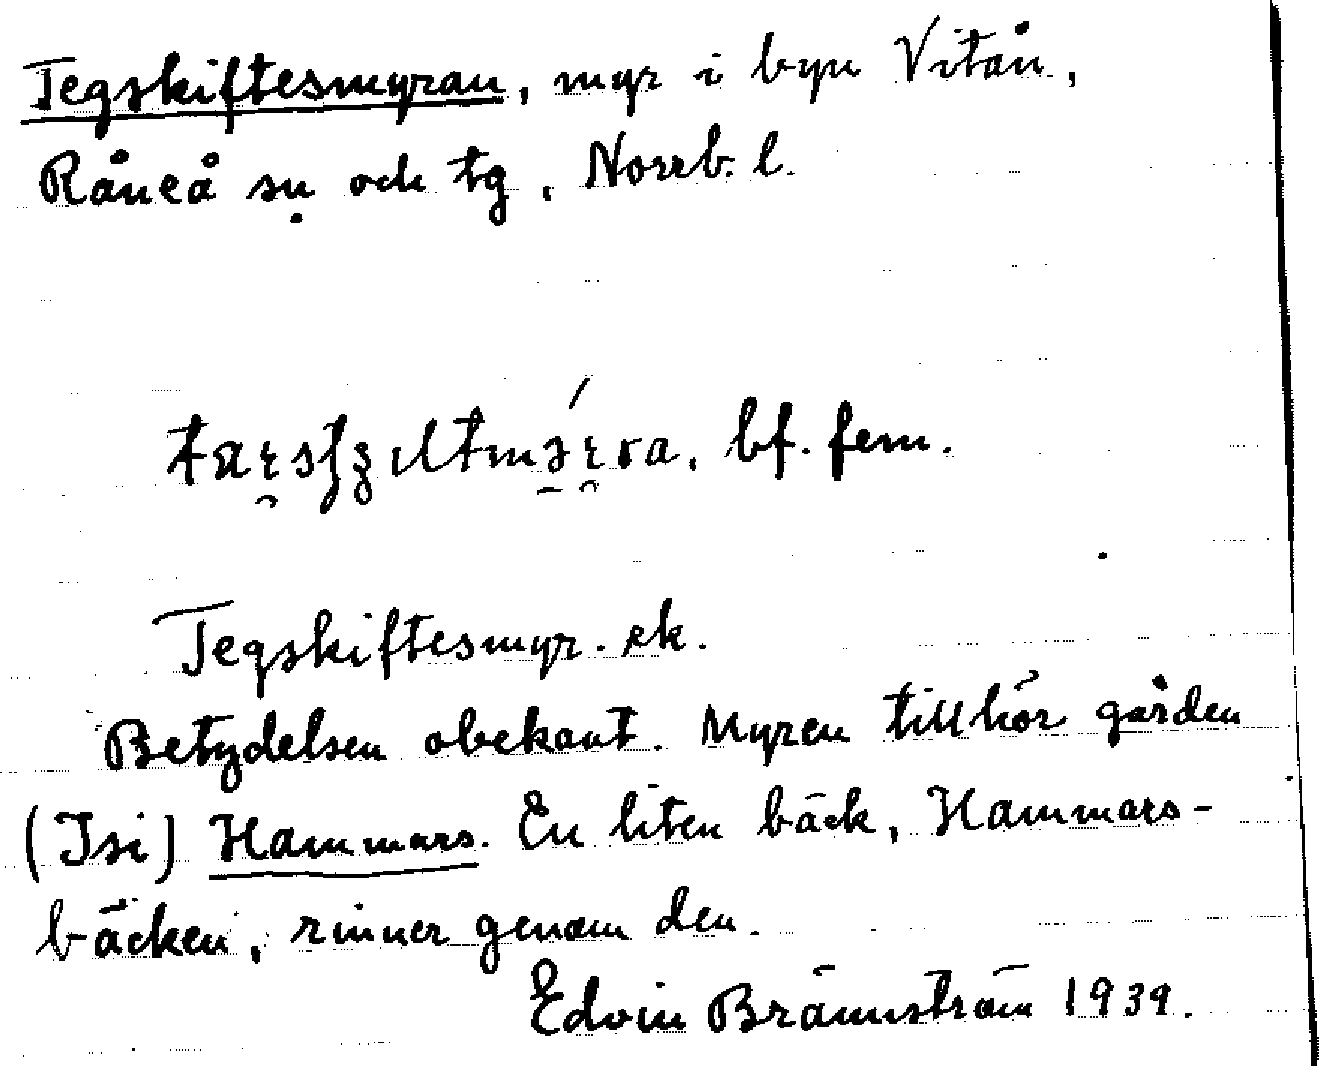 Tegskiftesmyran, myr i byn Vitån,
Råneå sn och tg, Norrb. l.
bf. fem.
Tegskiftesmyr. ek.
Betydelsen obekant. Myren tillhör gården
(Isi) Hammars. En liten bäck, Hammars-
bäcken, rinner genom den.
Edvin Brännström 1939.